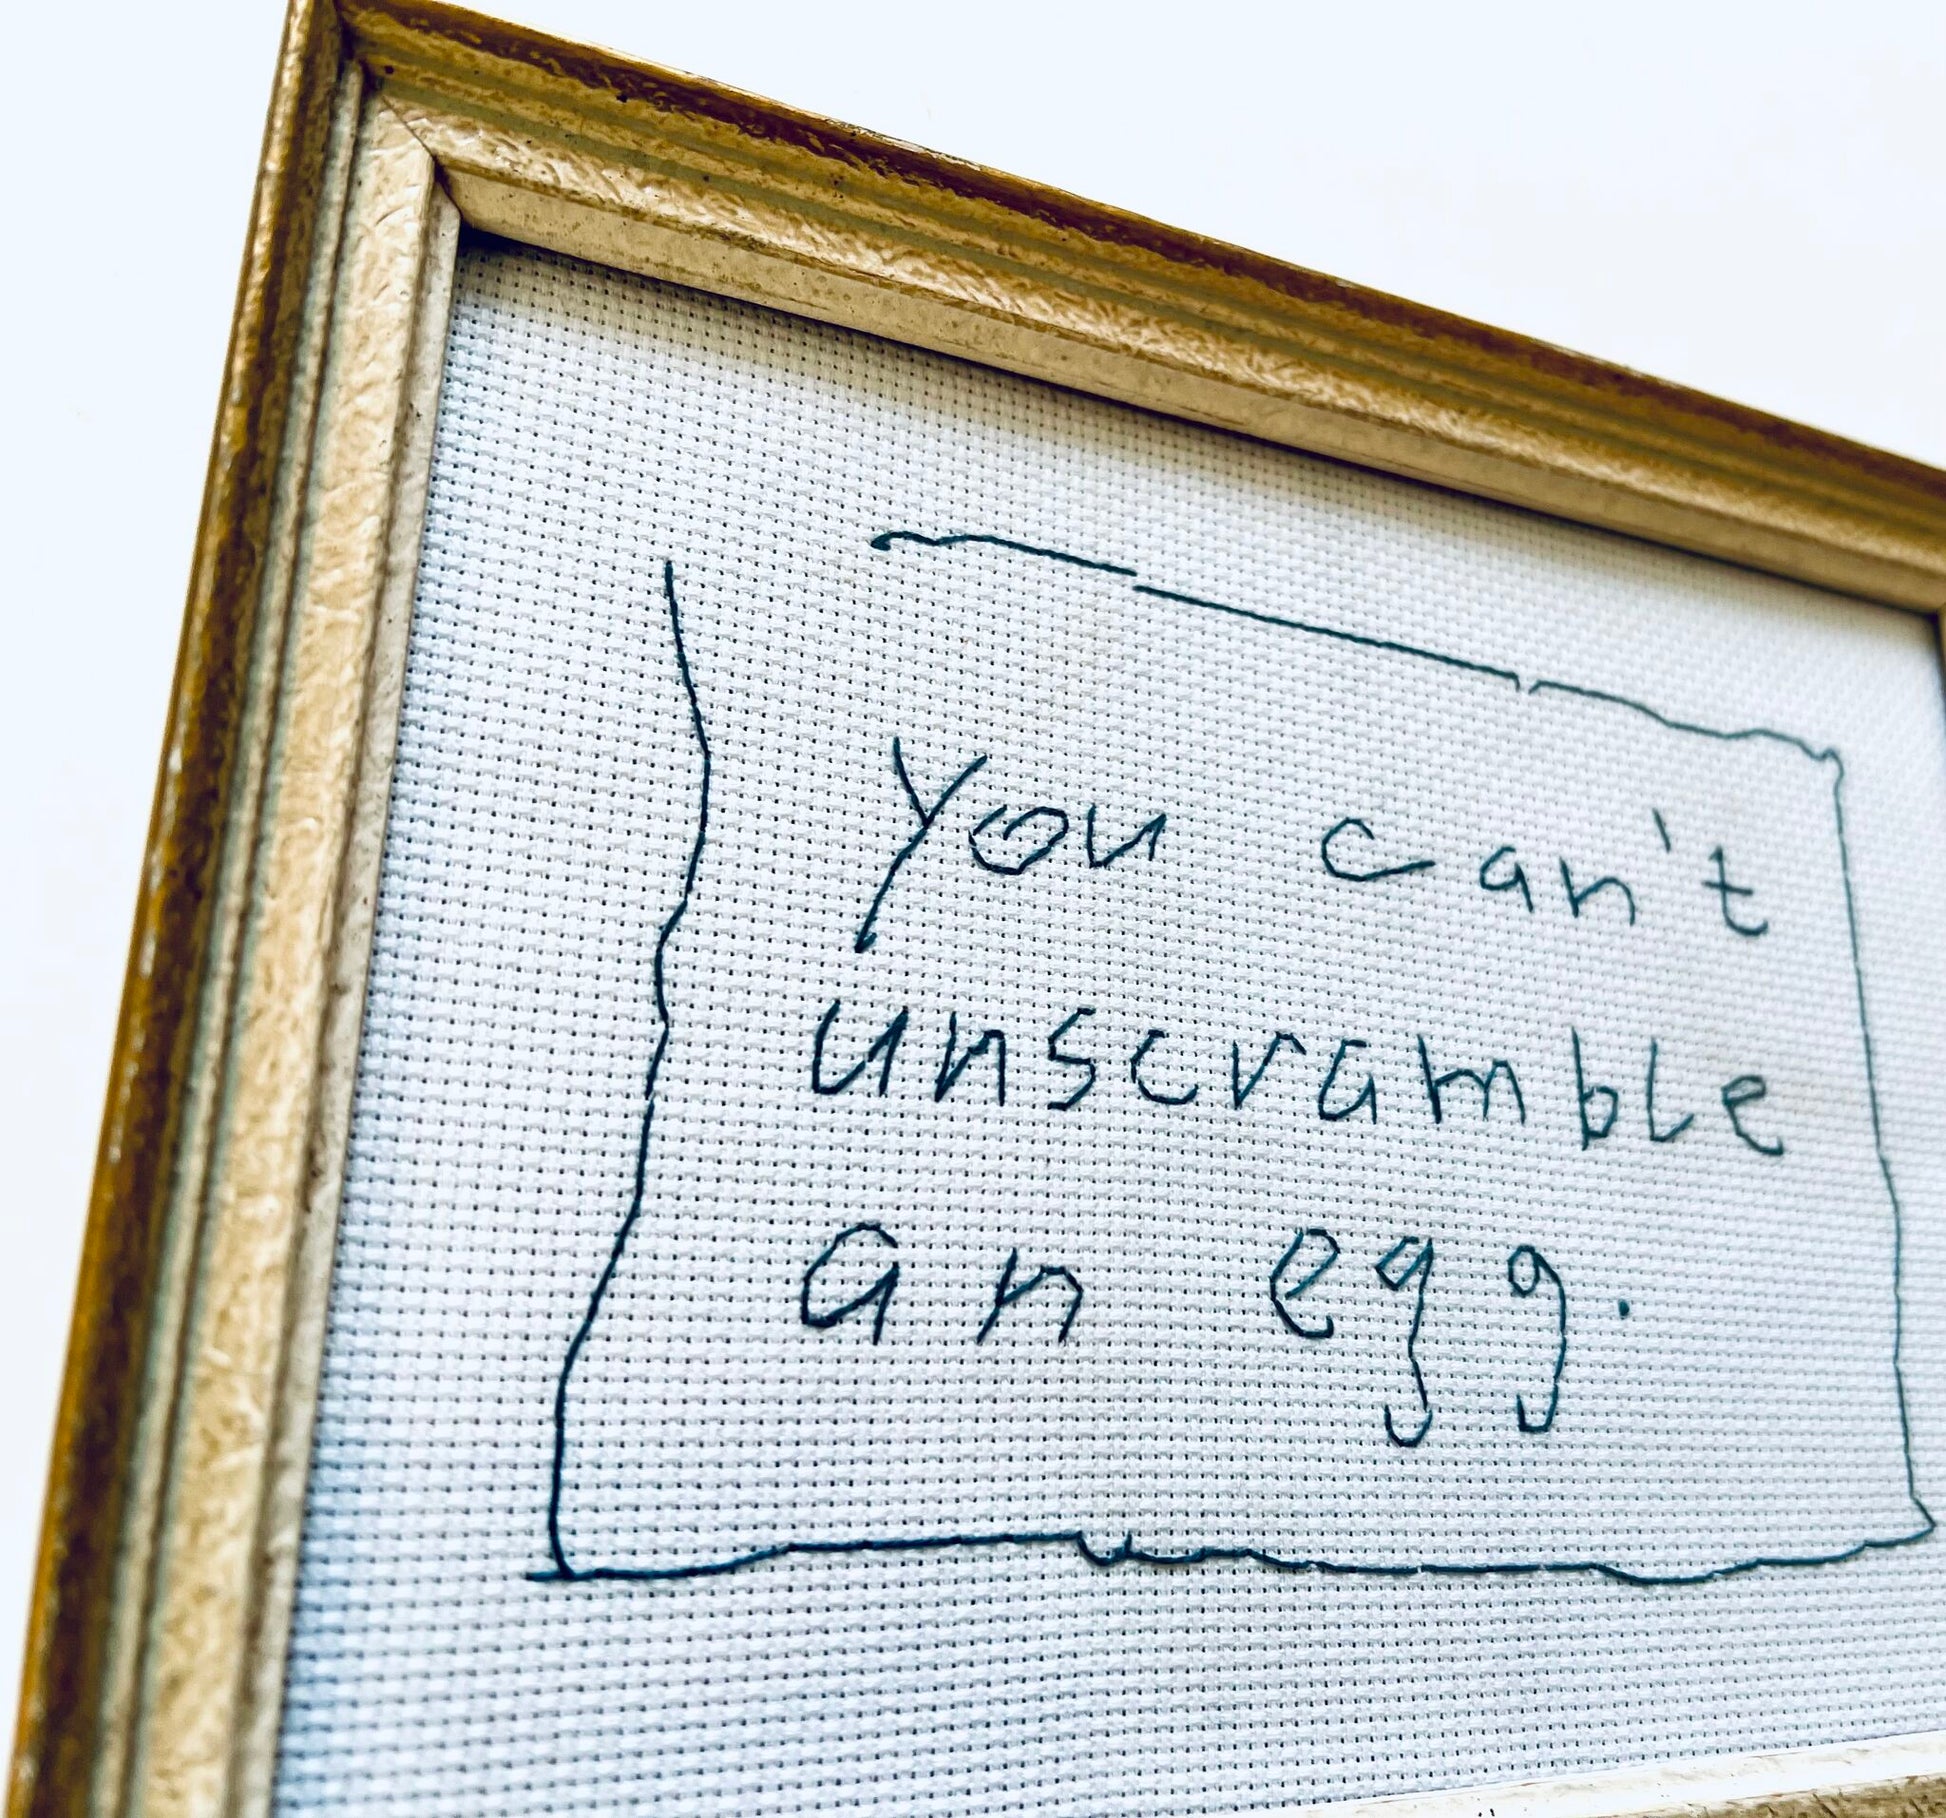 You can't
unscramble
an egg.